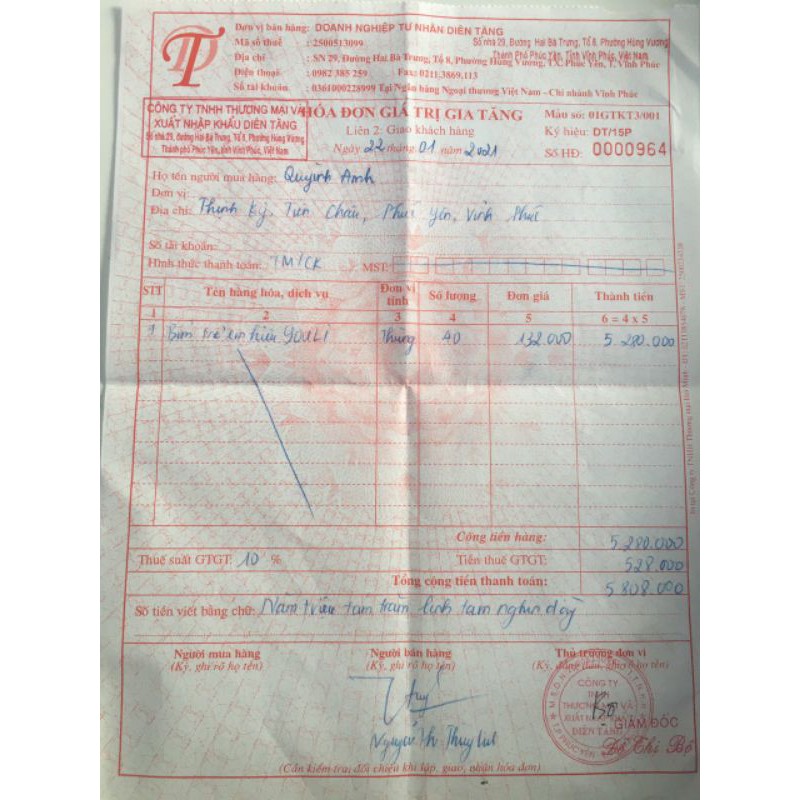 TP
Đơn vị bán hàng: DOANH NGHIỆP TƯ NHÂN DIÊN TĂNG
Mã số thuế : 2500513099
Số nhà 29, Đường Hai Bà Trưng, Tổ 8, Phường Hùng Vương
Thành Phố Phúc Yên, Tỉnh Vĩnh Phúc, Việt Nam
Địa chỉ : SN 29, Đường Hai Bà Trưng, Tổ 8, Phường Hùng Vương, TX. Phúc Yên, T. Vĩnh Phúc
Điện thoại : 0982 385 259 Fax: 0211.3869.113
Số tài khoản : 0361000228999 Tại Ngân hàng Ngoại thương Việt Nam - Chi nhánh Vĩnh Phúc
CÔNG TY TNHH THƯƠNG MẠI VÀ
XUẤT NHẬP KHẨU DIÊN TĂNG
Số nhà 29, đường Hai Bà Trưng, Tổ 8, Phường Hùng Vương
Thành phố Phúc Yên, tỉnh Vĩnh Phúc, Việt Nam
HÓA ĐƠN GIÁ TRỊ GIA TĂNG
Liên 2: Giao khách hàng
Ngày 22 tháng 01 năm 2021
Mẫu số: 01GTKT3/001
Ký hiệu: DT/15P
Số HĐ: 0000964
Họ tên người mua hàng: Quỳnh Anh
Đơn vị:
Địa chỉ: Thịnh Kỷ, Tiền Châu, Phúc Yên, Vĩnh Phúc
Số tài khoản:
Hình thức thanh toán: TM/CK MST:
STT Tên hàng hóa, dịch vụ Đơn vị tính Số lượng Đơn giá Thành tiền
1 2 3 4 5 6 = 4 x 5
1 Bỉm trẻ em hiệu YOULI Thùng 40 132.000 5 280.000
Cộng tiền hàng: 5 280.000
Thuế suất GTGT: 10 % Tiền thuế GTGT: 528.000
Tổng cộng tiền thanh toán: 5 808.000
Số tiền viết bằng chữ: Năm triệu tám trăm linh tám nghìn đồng
Người mua hàng Người bán hàng Thủ trưởng đơn vị
(Ký, ghi rõ họ tên) (Ký, ghi rõ họ tên) (Ký, đóng dấu, ghi rõ họ tên)
CÔNG TY
TNHH
THƯƠNG MẠI VÀ
XUẤT NHẬP KHẨU
DIÊN TĂNG
GIÁM ĐỐC
(Cần kiểm tra, đối chiếu khi lập, giao, nhận hóa đơn)